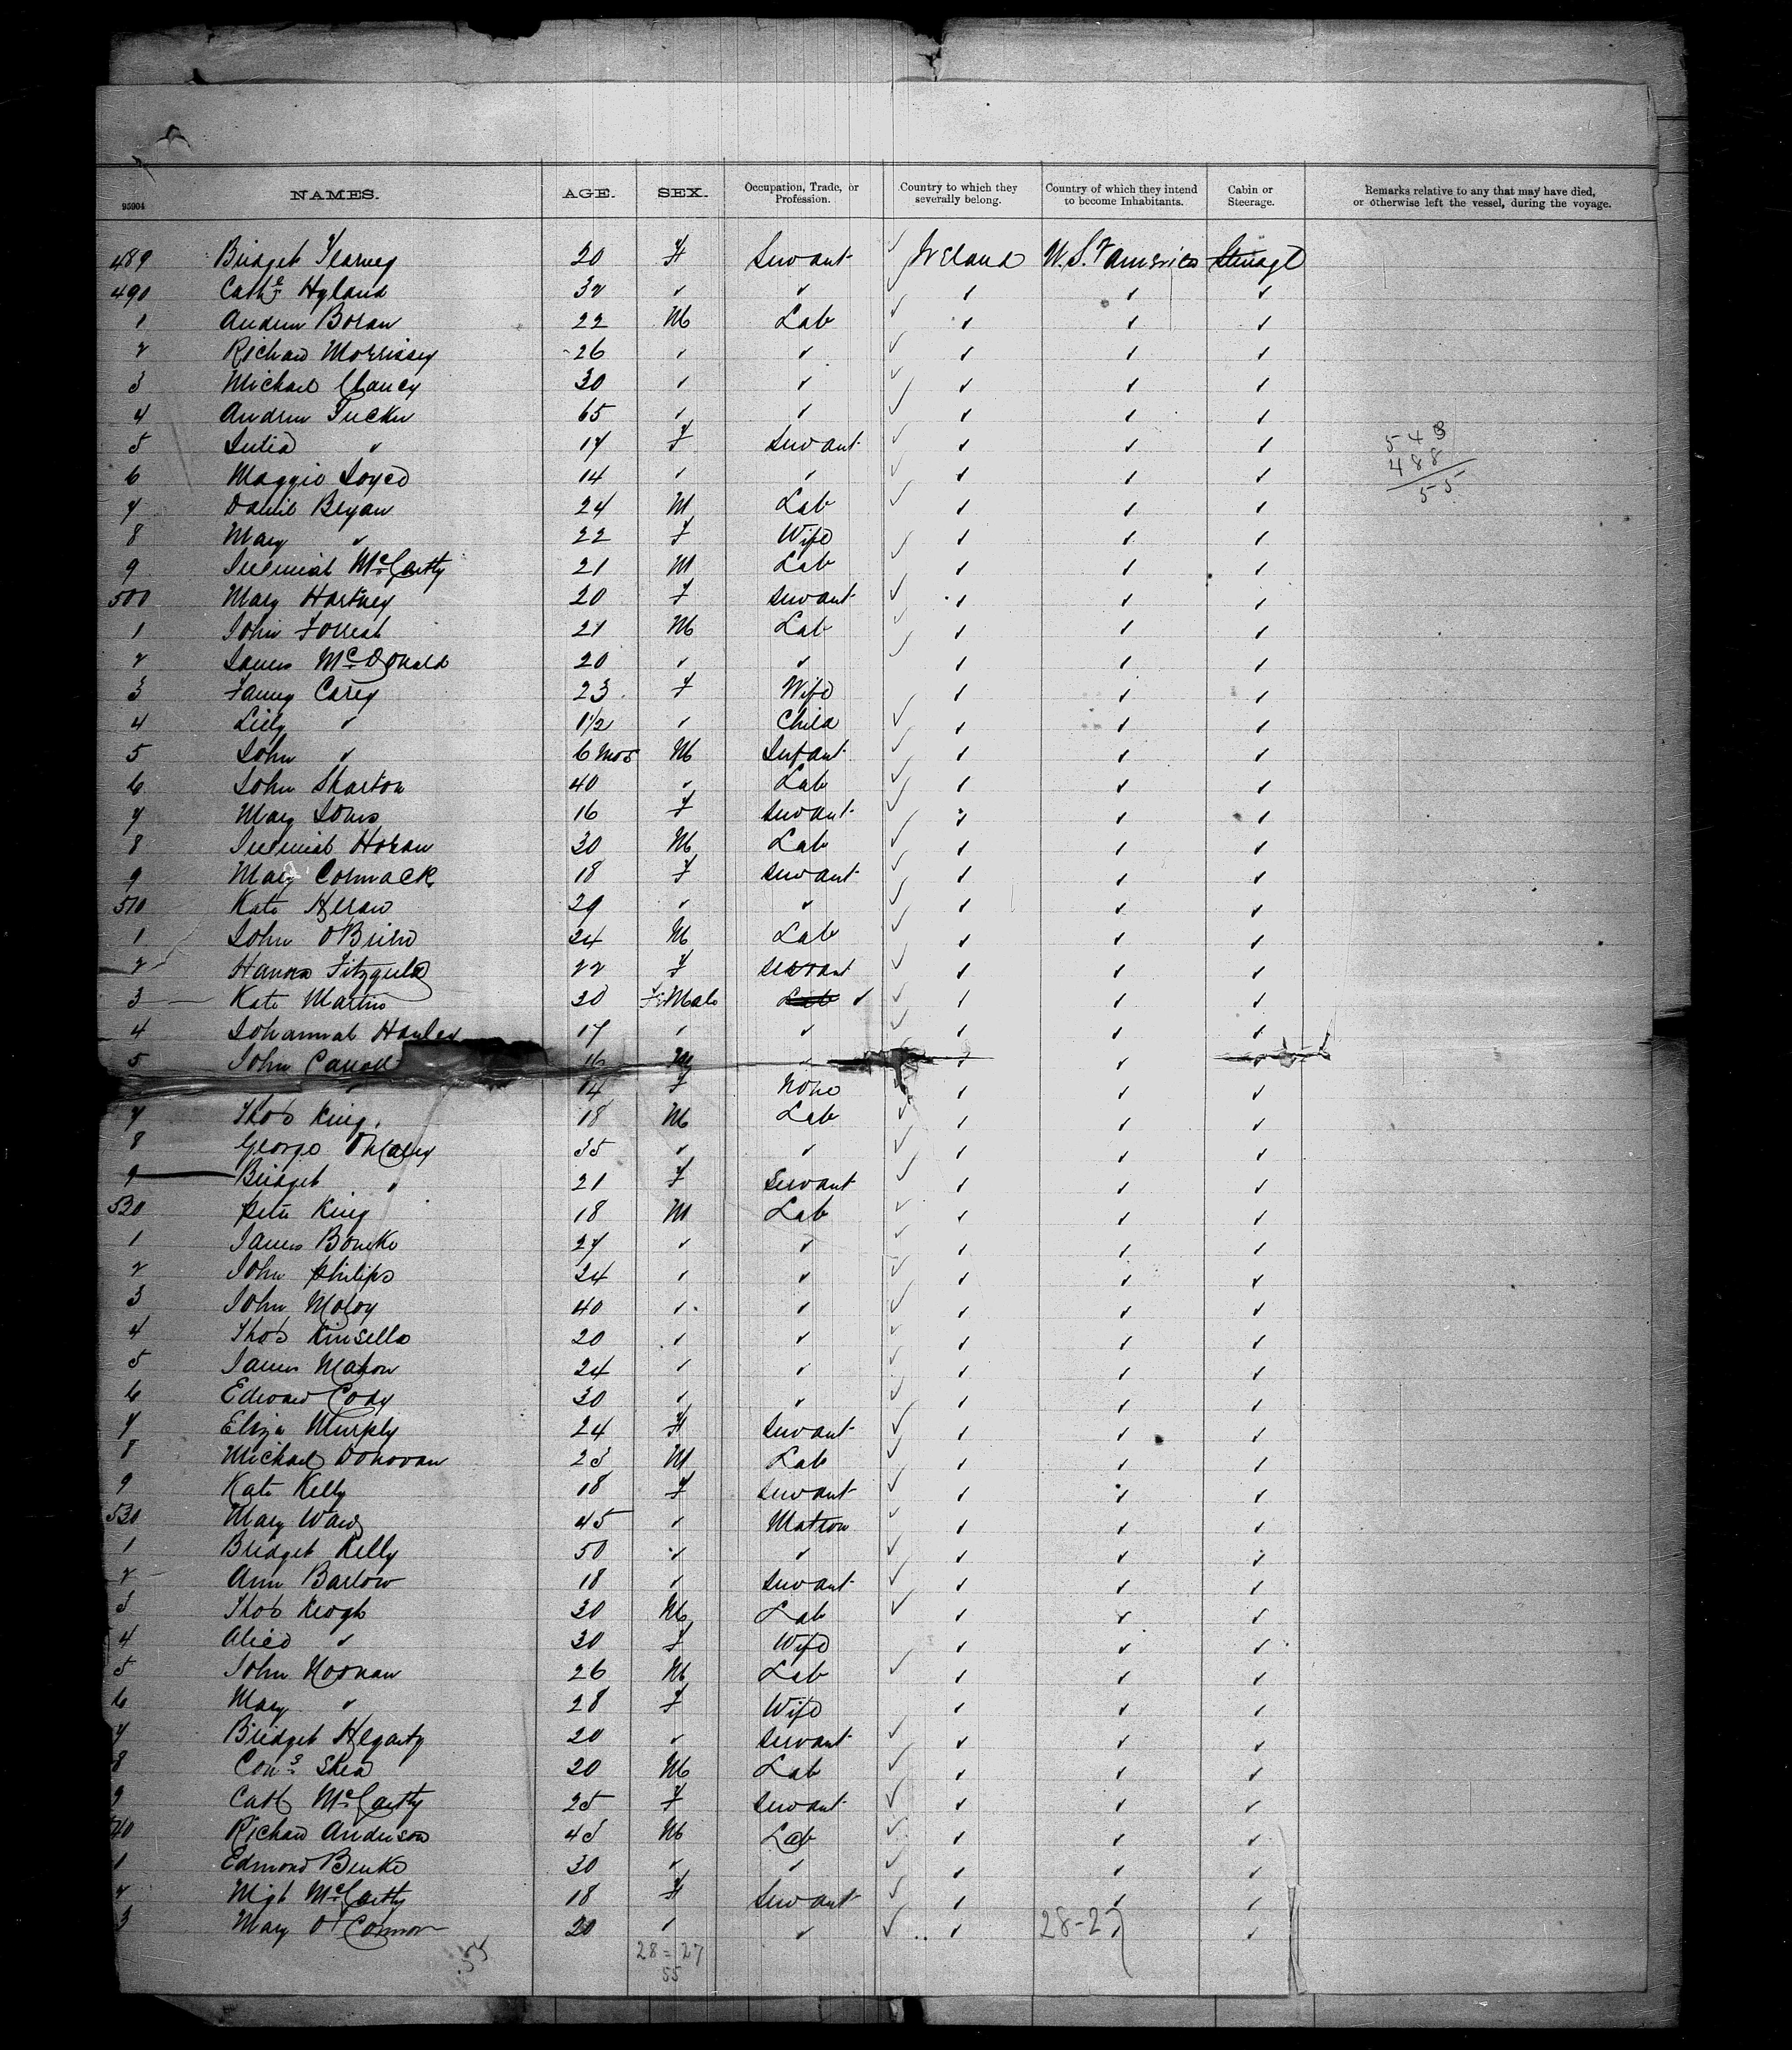 NAMES. AGE. SEX. Occupation, Trade, or Profession. Country to which they severally belong. Country of which they intend to become Inhabitants. Cabin or Steerage. Remarks relative to any that may have died, or otherwise left the vessel, during the voyage.
95904
489 Bridget 20 F Servant ✓ Ireland U.S. America Steerage
490 Cath Hyland 32 " " ✓ " " "
1 Andrew Boran 22 M Lab ✓ " " "
2 Richard Morrissey 26 " " ✓ " " "
3 Michael Clancy 30 " " ✓ " " "
4 Andrew Tucker 65 " " ✓ " " "
5 Julia " 17 F Servant ✓ " " " 543
6 Maggie Joyce 14 " " ✓ " " " 488
7 Daniel Bryan 24 M Lab ✓ " " " 55
8 Mary " 22 F Wife " " "
9 Jeremiah McCarthy 21 M Lab ✓ " " "
500 Mary Hartney 20 F Servant ✓ " " "
1 John Forrest 21 M Lab ✓ " " "
2 James McDonald 20 " " ✓ " " "
3 Fanny Carey 23 F Wife ✓ " " "
4 Lilly " 1½ " Child ✓ " " "
5 John " 6 mos M Infant ✓ " " "
6 John Sharton 40 " Lab ✓ " " "
7 Mary 16 F Servant ✓ " " "
8 Jeremiah Horan 30 M Lab ✓ " " "
9 Mary Cormack 18 F Servant ✓ " " "
510 Kate 29 " " ✓ " " "
1 John O'Brien 24 M Lab ✓ " " "
2 Hanora Fitzgerald 22 F Servant ✓ " " "
3 Kate Martin 20 F Male Lab " ✓ " " "
4 Johannah Hanley 17 " " ✓ " " "
5 John Carroll 16 M " " " "
14 F None ✓ " " "
7 Thos King 18 M Lab ✓ " " "
8 George 35 " " ✓ " " "
9 Bridget " 21 F Servant ✓ " " "
520 Peter King 18 M Lab ✓ " " "
1 James Bourke 27 " " ✓ " " "
2 John Philips 24 " " ✓ " " "
3 John Moloy 40 " " ✓ " " "
4 Thos Kinsella 20 " " ✓ " " "
5 James Mahon 24 " " ✓ " " "
6 Edward Cody 30 " " ✓ " " "
7 Eliza Murphy 24 F Servant ✓ " " "
8 Michael Donovan 23 M Lab ✓ " " "
9 Kate Kelly 18 F Servant ✓ " " "
530 Mary Ward 45 " Matron ✓ " " "
1 Bridget Kelly 50 " " ✓ " " "
2 Ann Barlow 18 " Servant ✓ " " "
3 Thos Keogh 30 M Lab ✓ " " "
4 Alice " 30 F Wife " " "
5 John Noonan 26 M Lab ✓ " " "
6 Mary " 28 F Wife " " "
7 Bridget Hegarty 20 " Servant ✓ " " "
8 Cons Shea 20 M Lab ✓ " " "
9 Cath McCarthy 25 F Servant ✓ " " "
40 Richard Anderson 45 M Lab ✓ " " "
1 Edmond Burke 30 " " ✓ " " "
2 Mgt McCarthy 18 F Servant ✓ " " "
3 Mary O'Connor 20 " " ✓ " 28-27 " "
55 28 = 27
55